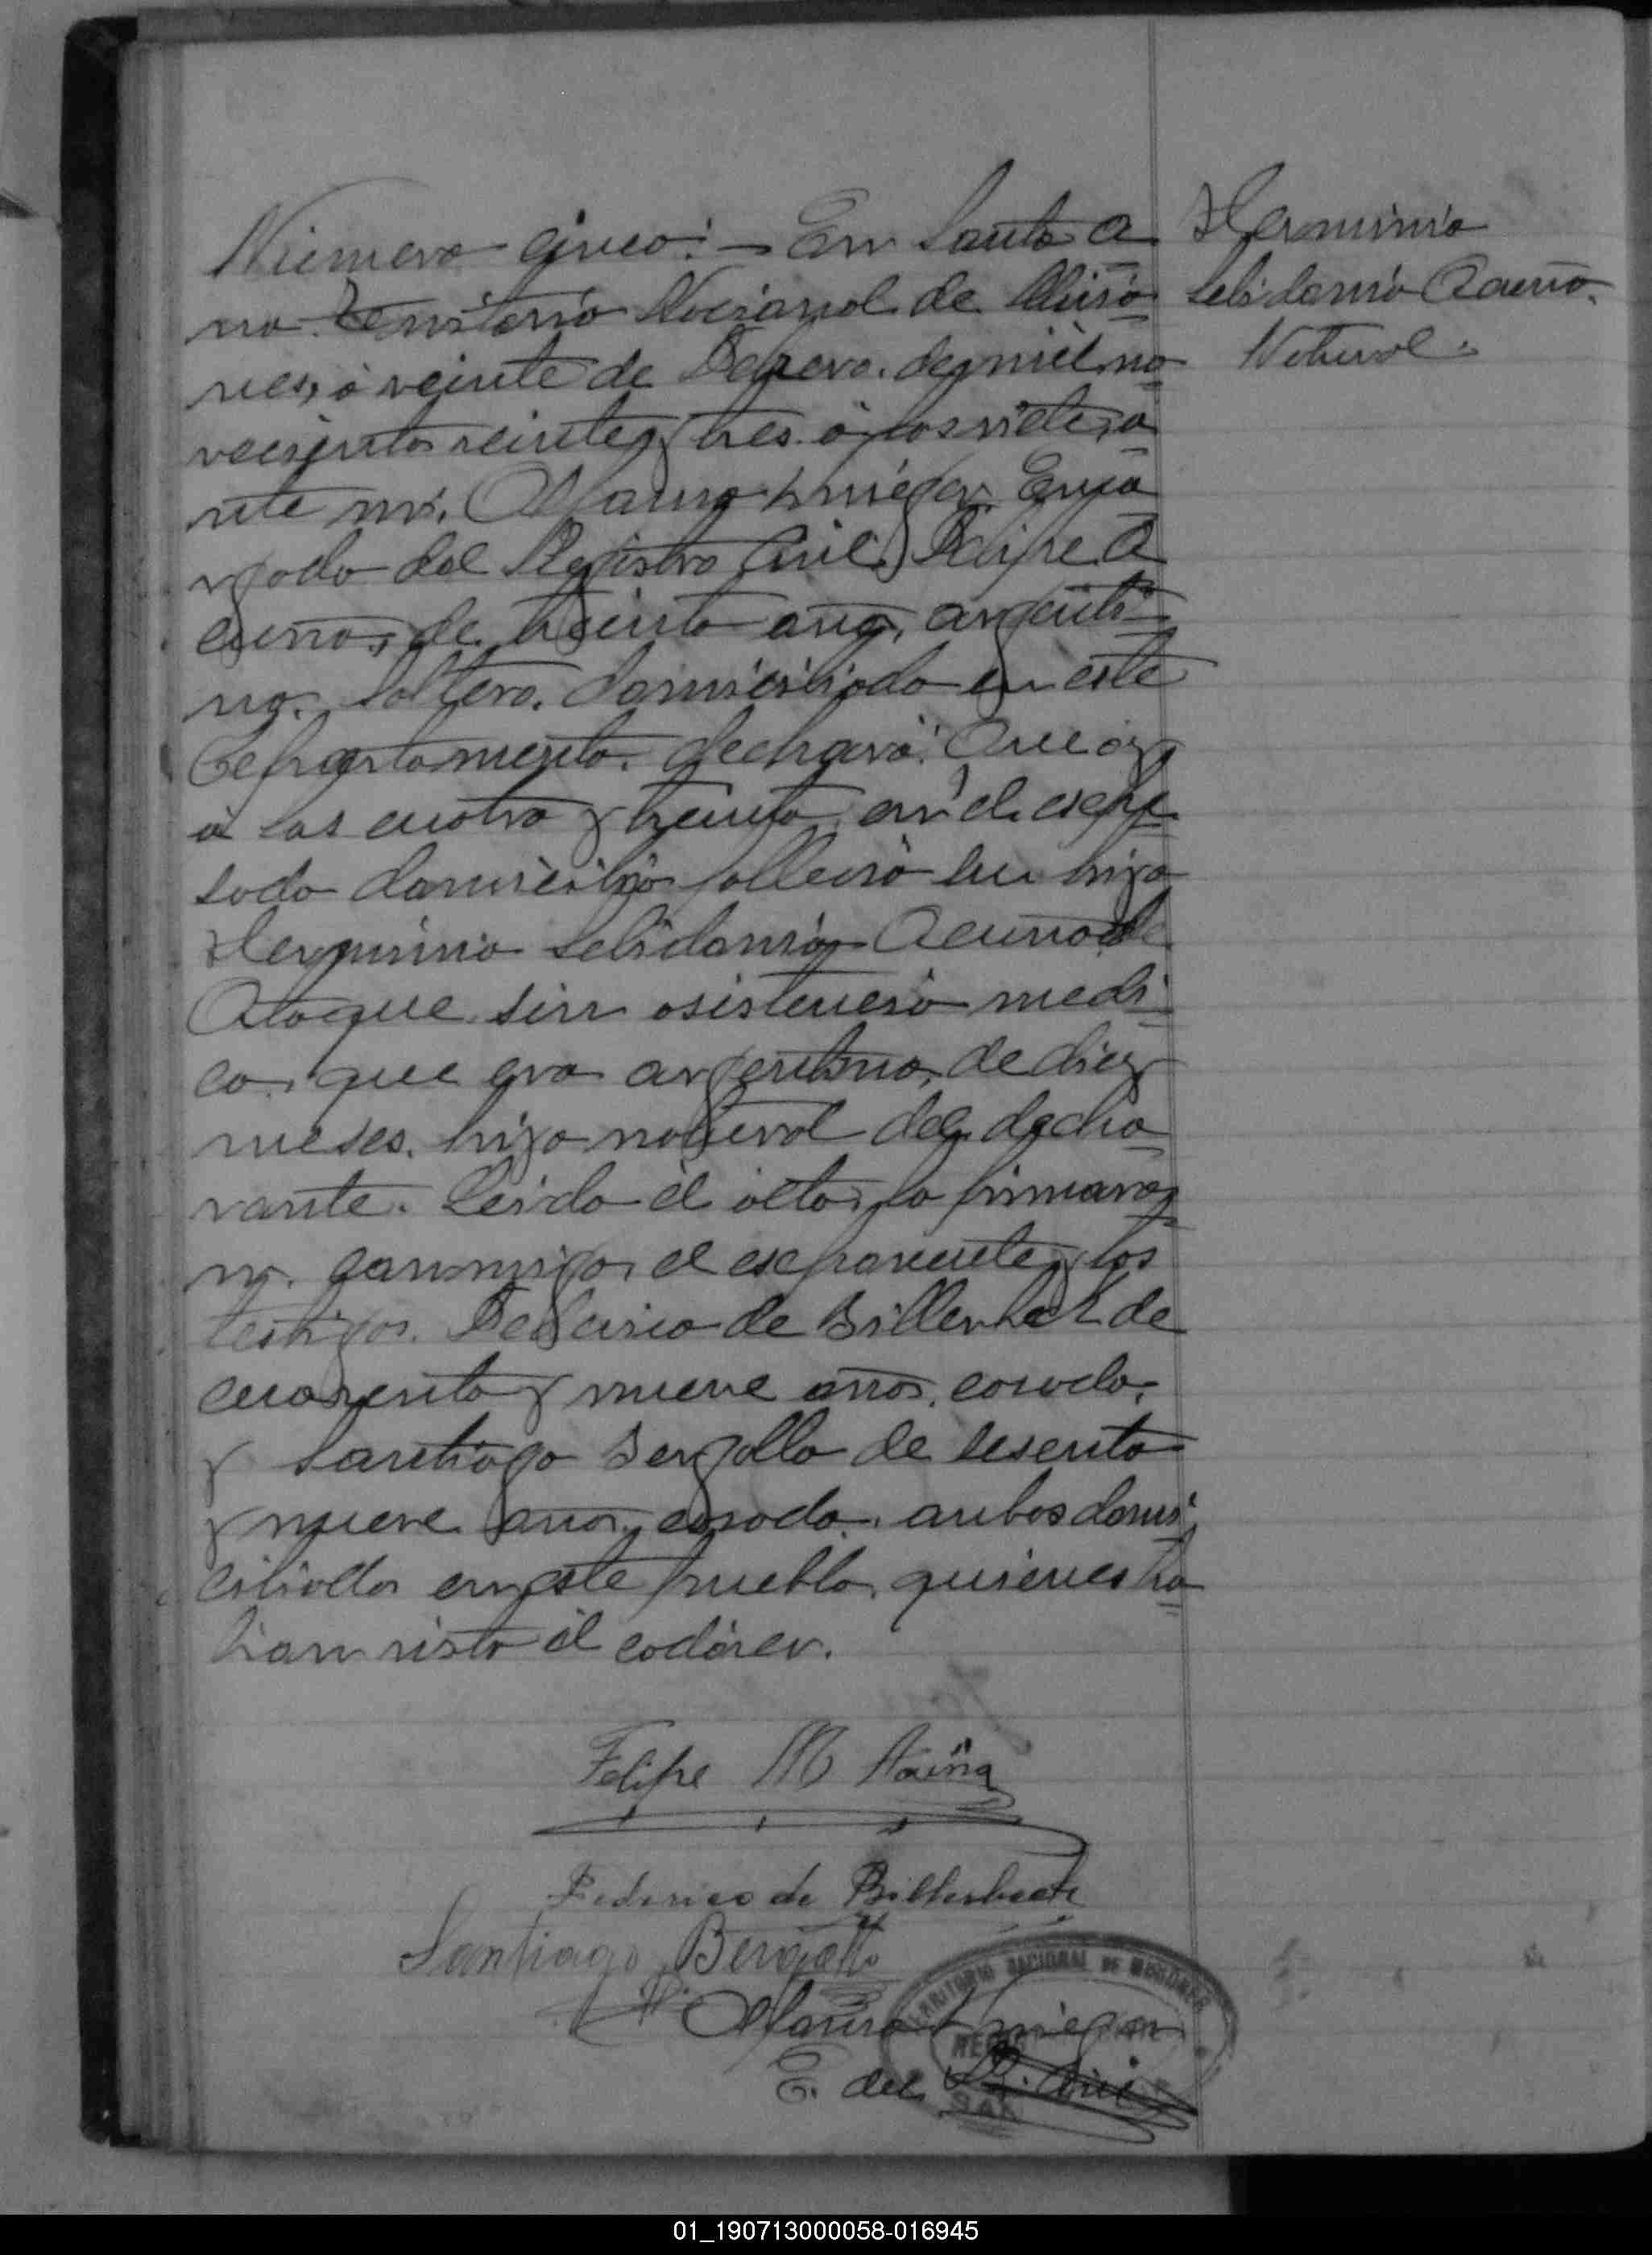 Numero cinco: — En Santa A
na Territorio Nacional de Misio
nes, á veinte de Febrero de mil no
vecientos veinte y tres á las siete, a
nte mi, Encar
gado del Registro Civil, Felipe A
cuña, de treinta años, argenti
no, soltero, domiciliado en este
Departamento, declaró: Que oy
á las cuatro y treinta, en el espre
sado domicilio fallecio su hijo
Herminio Selidonio Acuña de
Ataque sin asistencia medi
ca, que era argentino, de diez
meses, hijo natural del decla
rante. Leido el acta, la firmaro
n, conmigo, el esponente y los
testigos. Federico de Billerbeck de
cuarenta y nueve años, casado,
y Santiago Bergallo de sesenta
y nueve años, casado, ambos domi
ciliados en este pueblo, quienes ha
bian visto el cadáver.
Herminio
Selidonio Acuña.
Natural.
Felipe M Acuña
Federico de Billerbeck
Santiago Bergallo
E. del R. Civil
TERRITORIO NACIONAL DE MISIONES
01_190713000058-016945